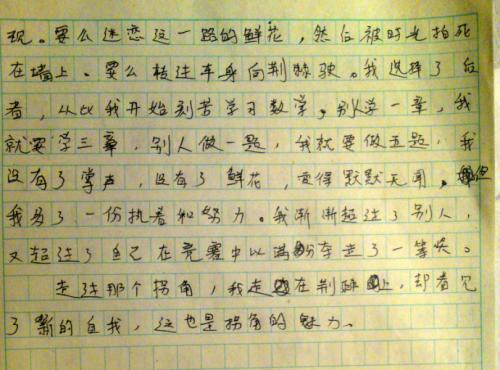 现。要么迷恋这一路的鲜花，然后被时光拍死
在墙上。要么转过车身向荆棘驶。我选择了后
者，从此我开始刻苦学习数学，别人学一章，我
就要学三章，别人做一题，我就要做五题，我
没有了掌声，没有了鲜花，变得默默无闻。但
我多了一份执着和努力。我渐渐超过了别人，
又超过了自己在竞赛中以满分夺走了一等奖。
走过那个拐角，我走在荆棘上，却看见
了新的自我，这也是拐角的魅力。